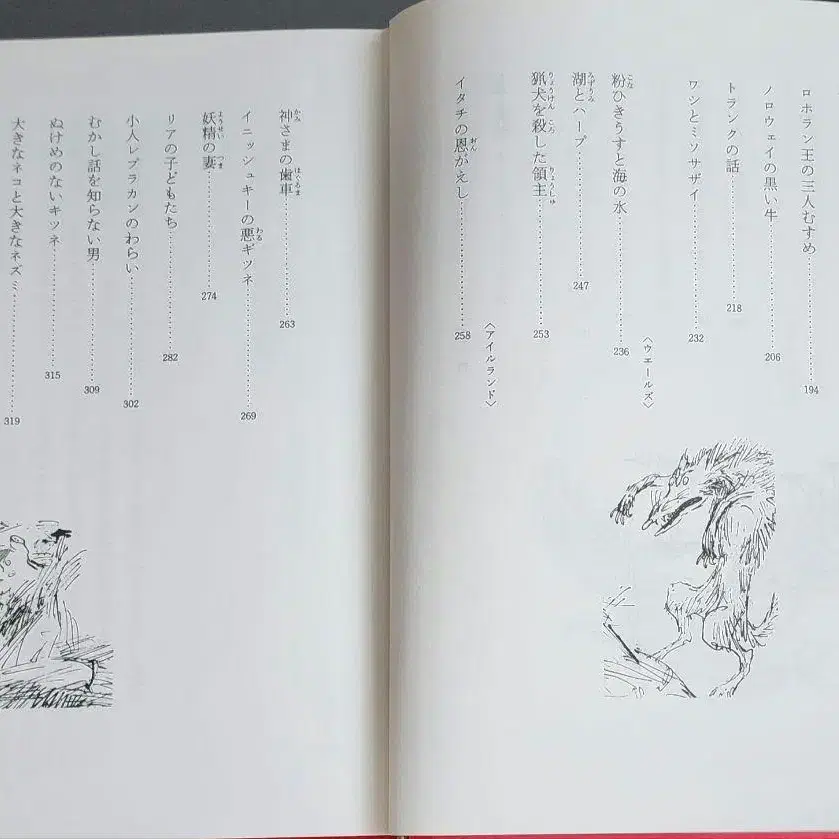 ロホラン王の三人むすめ……194
ノロウェイの黒い牛……206
トランクの話……218
ワシとミソサザイ……232
〈ウエールズ〉
粉ひきうすと海の水……236
湖とハープ……247
猟犬を殺した領主……253
〈アイルランド〉
イタチの恩がえし……258
神さまの歯車……263
イニッシュキーの悪ギツネ……269
妖精の妻……274
リアの子どもたち……282
小人レプラカンのわらい……302
むかし話を知らない男……309
ぬけめのないキツネ……315
大きなネコと大きなネズミ……319